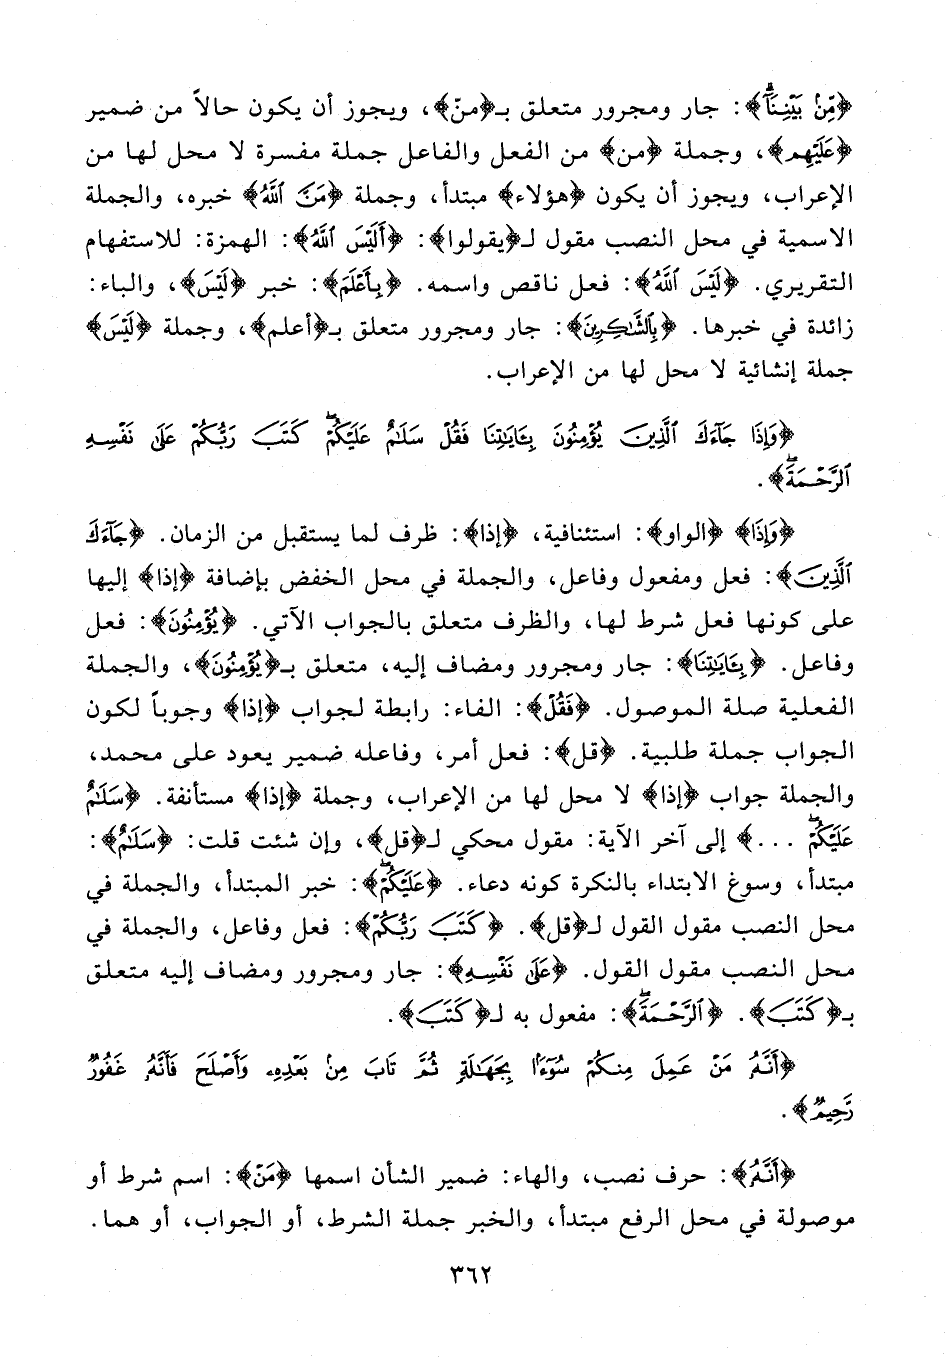 ﴿مِّنۢ بَيْنِنَآ﴾: جار ومجرور متعلق بـ﴿منّ﴾، ويجوز أن يكون حالاً من ضمير
﴿عَلَيْهِم﴾، وجملة ﴿من﴾ من الفعل والفاعل جملة مفسرة لا محل لها من
الإعراب، ويجوز أن يكون ﴿هؤلاء﴾ مبتدأ، وجملة ﴿مَنَّ ٱللَّهُ﴾ خبره، والجملة
الاسمية في محل النصب مقول لـ﴿يقولوا﴾: ﴿أَلَيْسَ ٱللَّهُ﴾: الهمزة: للاستفهام
التقريري. ﴿لَيْسَ ٱللَّهُ﴾: فعل ناقص واسمه. ﴿بِأَعْلَمَ﴾: خبر ﴿لَيْسَ﴾، والباء:
زائدة في خبرها. ﴿بِٱلشَّٰكِرِينَ﴾: جار ومجرور متعلق بـ﴿أعلم﴾، وجملة ﴿لَيْسَ﴾
جملة إنشائية لا محل لها من الإعراب.
﴿وَإِذَا جَآءَكَ ٱلَّذِينَ يُؤْمِنُونَ بِـَٔايَٰتِنَا فَقُلْ سَلَٰمٌ عَلَيْكُمْ ۖ كَتَبَ رَبُّكُمْ عَلَىٰ نَفْسِهِ
ٱلرَّحْمَةَ ۖ﴾.
﴿وَإِذَا﴾ ﴿الواو﴾: استئنافية، ﴿إذا﴾: ظرف لما يستقبل من الزمان. ﴿جَآءَكَ
ٱلَّذِينَ﴾: فعل ومفعول وفاعل، والجملة في محل الخفض بإضافة ﴿إذا﴾ إليها
على كونها فعل شرط لها، والظرف متعلق بالجواب الآتي. ﴿يُؤْمِنُونَ﴾: فعل
وفاعل. ﴿بِـَٔايَٰتِنَا﴾: جار ومجرور ومضاف إليه، متعلق بـ﴿يُؤْمِنُونَ﴾، والجملة
الفعلية صلة الموصول. ﴿فَقُلْ﴾: الفاء: رابطة لجواب ﴿إذا﴾ وجوباً لكون
الجواب جملة طلبية. ﴿قل﴾: فعل أمر، وفاعله ضمير يعود على محمد،
والجملة جواب ﴿إذا﴾ لا محل لها من الإعراب، وجملة ﴿إذا﴾ مستأنفة. ﴿سَلَٰمٌ
عَلَيْكُمْ ۖ ...﴾ إلى آخر الآية: مقول محكي لـ﴿قل﴾، وإن شئت قلت: ﴿سَلَٰمٌ﴾:
مبتدأ، وسوغ الابتداء بالنكرة كونه دعاء. ﴿عَلَيْكُمْ ۖ﴾: خبر المبتدأ، والجملة في
محل النصب مقول القول لـ﴿قل﴾. ﴿كَتَبَ رَبُّكُمْ﴾: فعل وفاعل، والجملة في
محل النصب مقول القول. ﴿عَلَىٰ نَفْسِهِ﴾: جار ومجرور ومضاف إليه متعلق
بـ﴿كَتَبَ﴾. ﴿ٱلرَّحْمَةَ ۖ﴾: مفعول به لـ﴿كَتَبَ﴾.
﴿أَنَّهُۥ مَنْ عَمِلَ مِنكُمْ سُوٓءًۢا بِجَهَٰلَةٍ ثُمَّ تَابَ مِنۢ بَعْدِهِۦ وَأَصْلَحَ فَأَنَّهُۥ غَفُورٌ
رَّحِيمٌ﴾.
﴿أَنَّهُۥ﴾: حرف نصب، والهاء: ضمير الشأن اسمها ﴿مَنْ﴾: اسم شرط أو
موصولة في محل الرفع مبتدأ، والخبر جملة الشرط، أو الجواب، أو هما.
٣٦٢